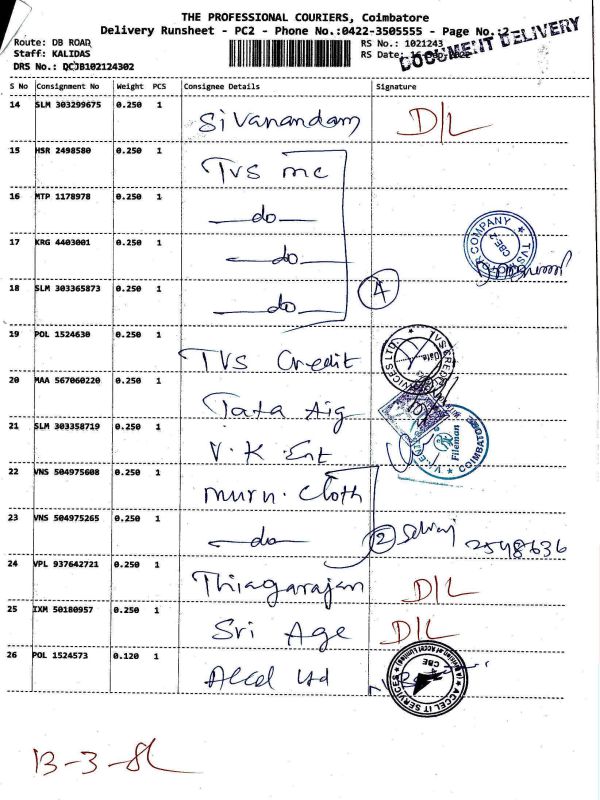 THE PROFESSIONAL COURIERS, Coimbatore
Delivery Runsheet - PC2 - Phone No.:0422-3505555 - Page No.:
DOCUMENT DELIVERY
Route: DB ROAD
RS No.: 1021243
Staff: KALIDAS
RS Date:
DRS No.: QCJB102124302
S No Consignment No Weight PCS Consignee Details Signature
14 SLM 303299675 0.250 1 Sivanandam D/L
15 HSR 2498580 0.250 1 TVS mc
16 MTP 1178978 0.250 1 —do—
17 KRG 4403001 0.250 1 —do—
18 SLM 303365873 0.250 1 —do— 4
19 POL 1524630 0.250 1 TVS Credit
20 MAA 567060220 0.250 1 Tata Aig
21 SLM 303358719 0.250 1 V.K Ent
22 VNS 504975608 0.250 1 murn. Cloth
23 VNS 504975265 0.250 1 —do— 2 Selvaj 2548636
24 VPL 937642721 0.250 1 Thiagarajan D/L
25 IXM 50180957 0.250 1 Sri Age D/L
26 POL 1524573 0.120 1 Accel Ltd
ACCEL IT SERVICES
CBE
13-3-8L